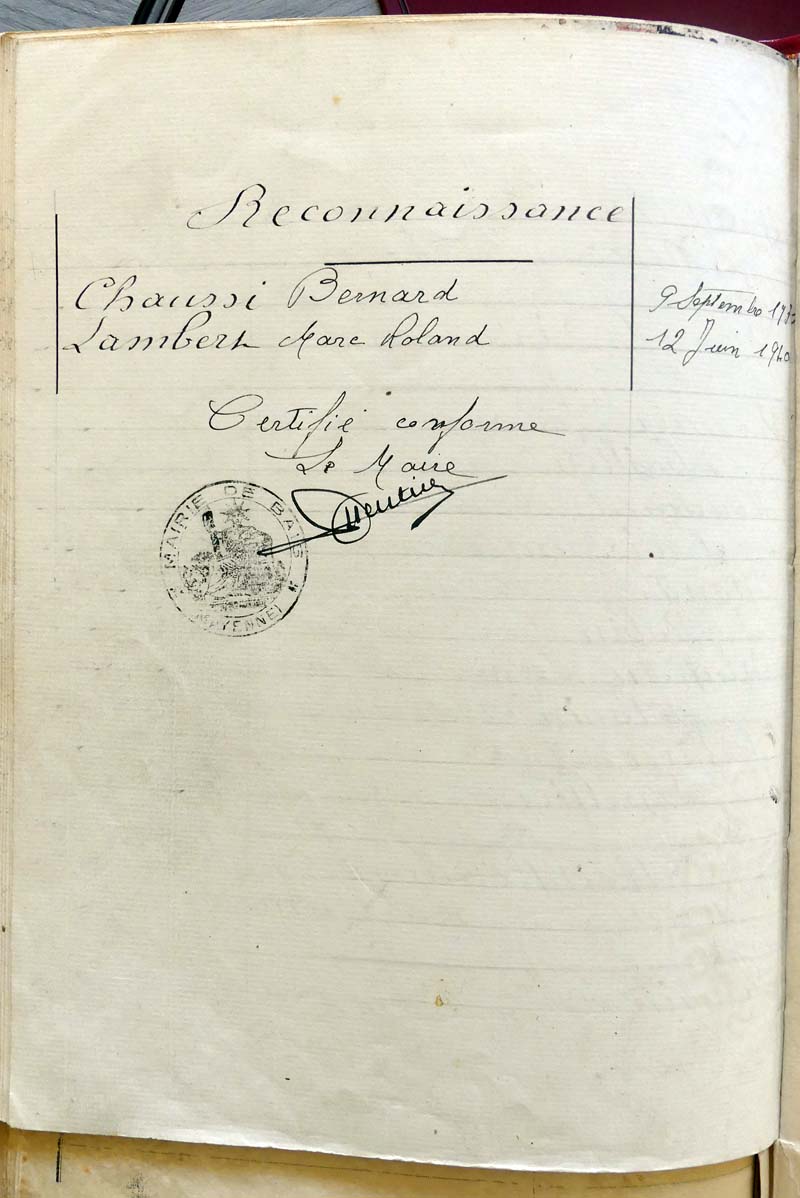 Reconnaissance
Chaussi Bernard 9 Septembre
Lambert Marc Roland 12 Juin 1940
Certifié conforme
Le Maire
MAIRIE DE BAIS
(MAYENNE)